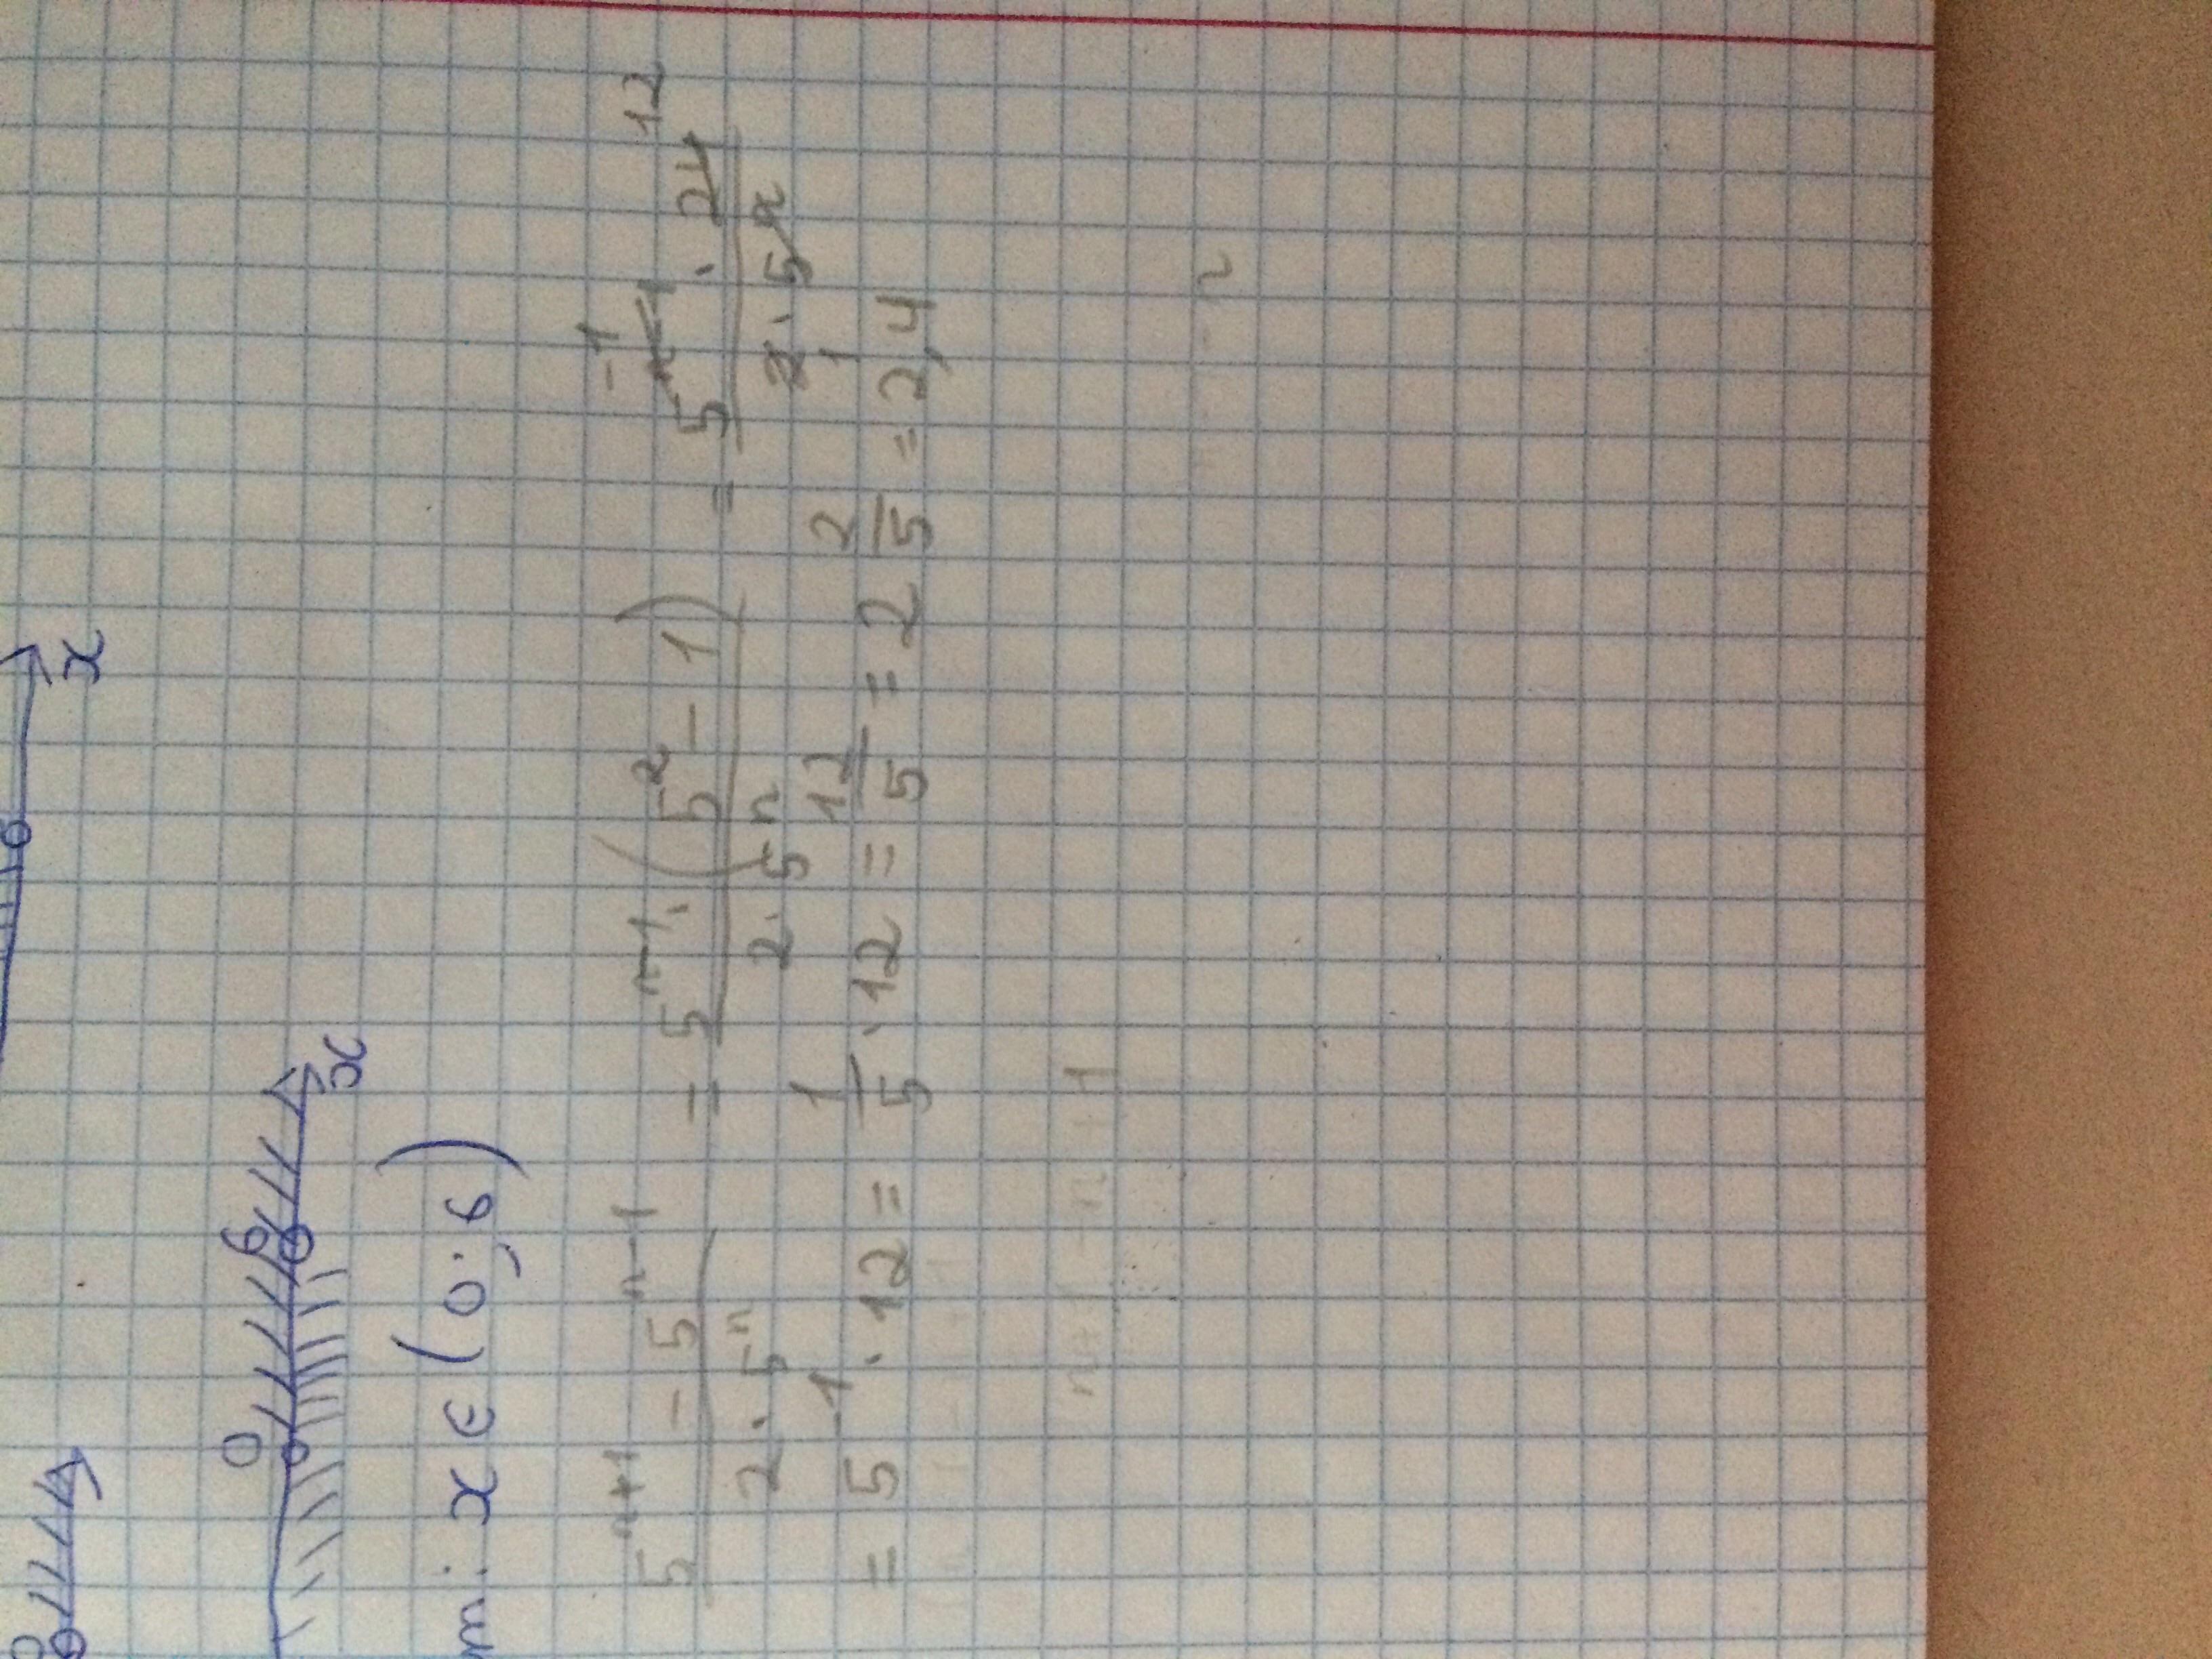 x
0 6
x
x ∈ (0; 6)
(5^{n+1} - 5^{n-1})/(2 · 5^n) = (5^{n-1} · (5^2 - 1))/(2 · 5^n) = (5^{n-1} · 24)/(2 · 5^n) -1 12 1
= 5^{-1} · 12 = 1/5 · 12 = 12/5 = 2 2/5 = 2,4